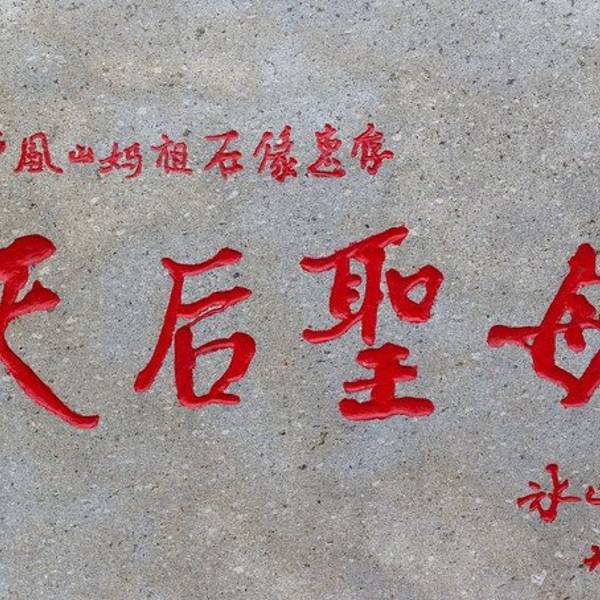 凰山妈祖石像惠存
天后聖母
冰